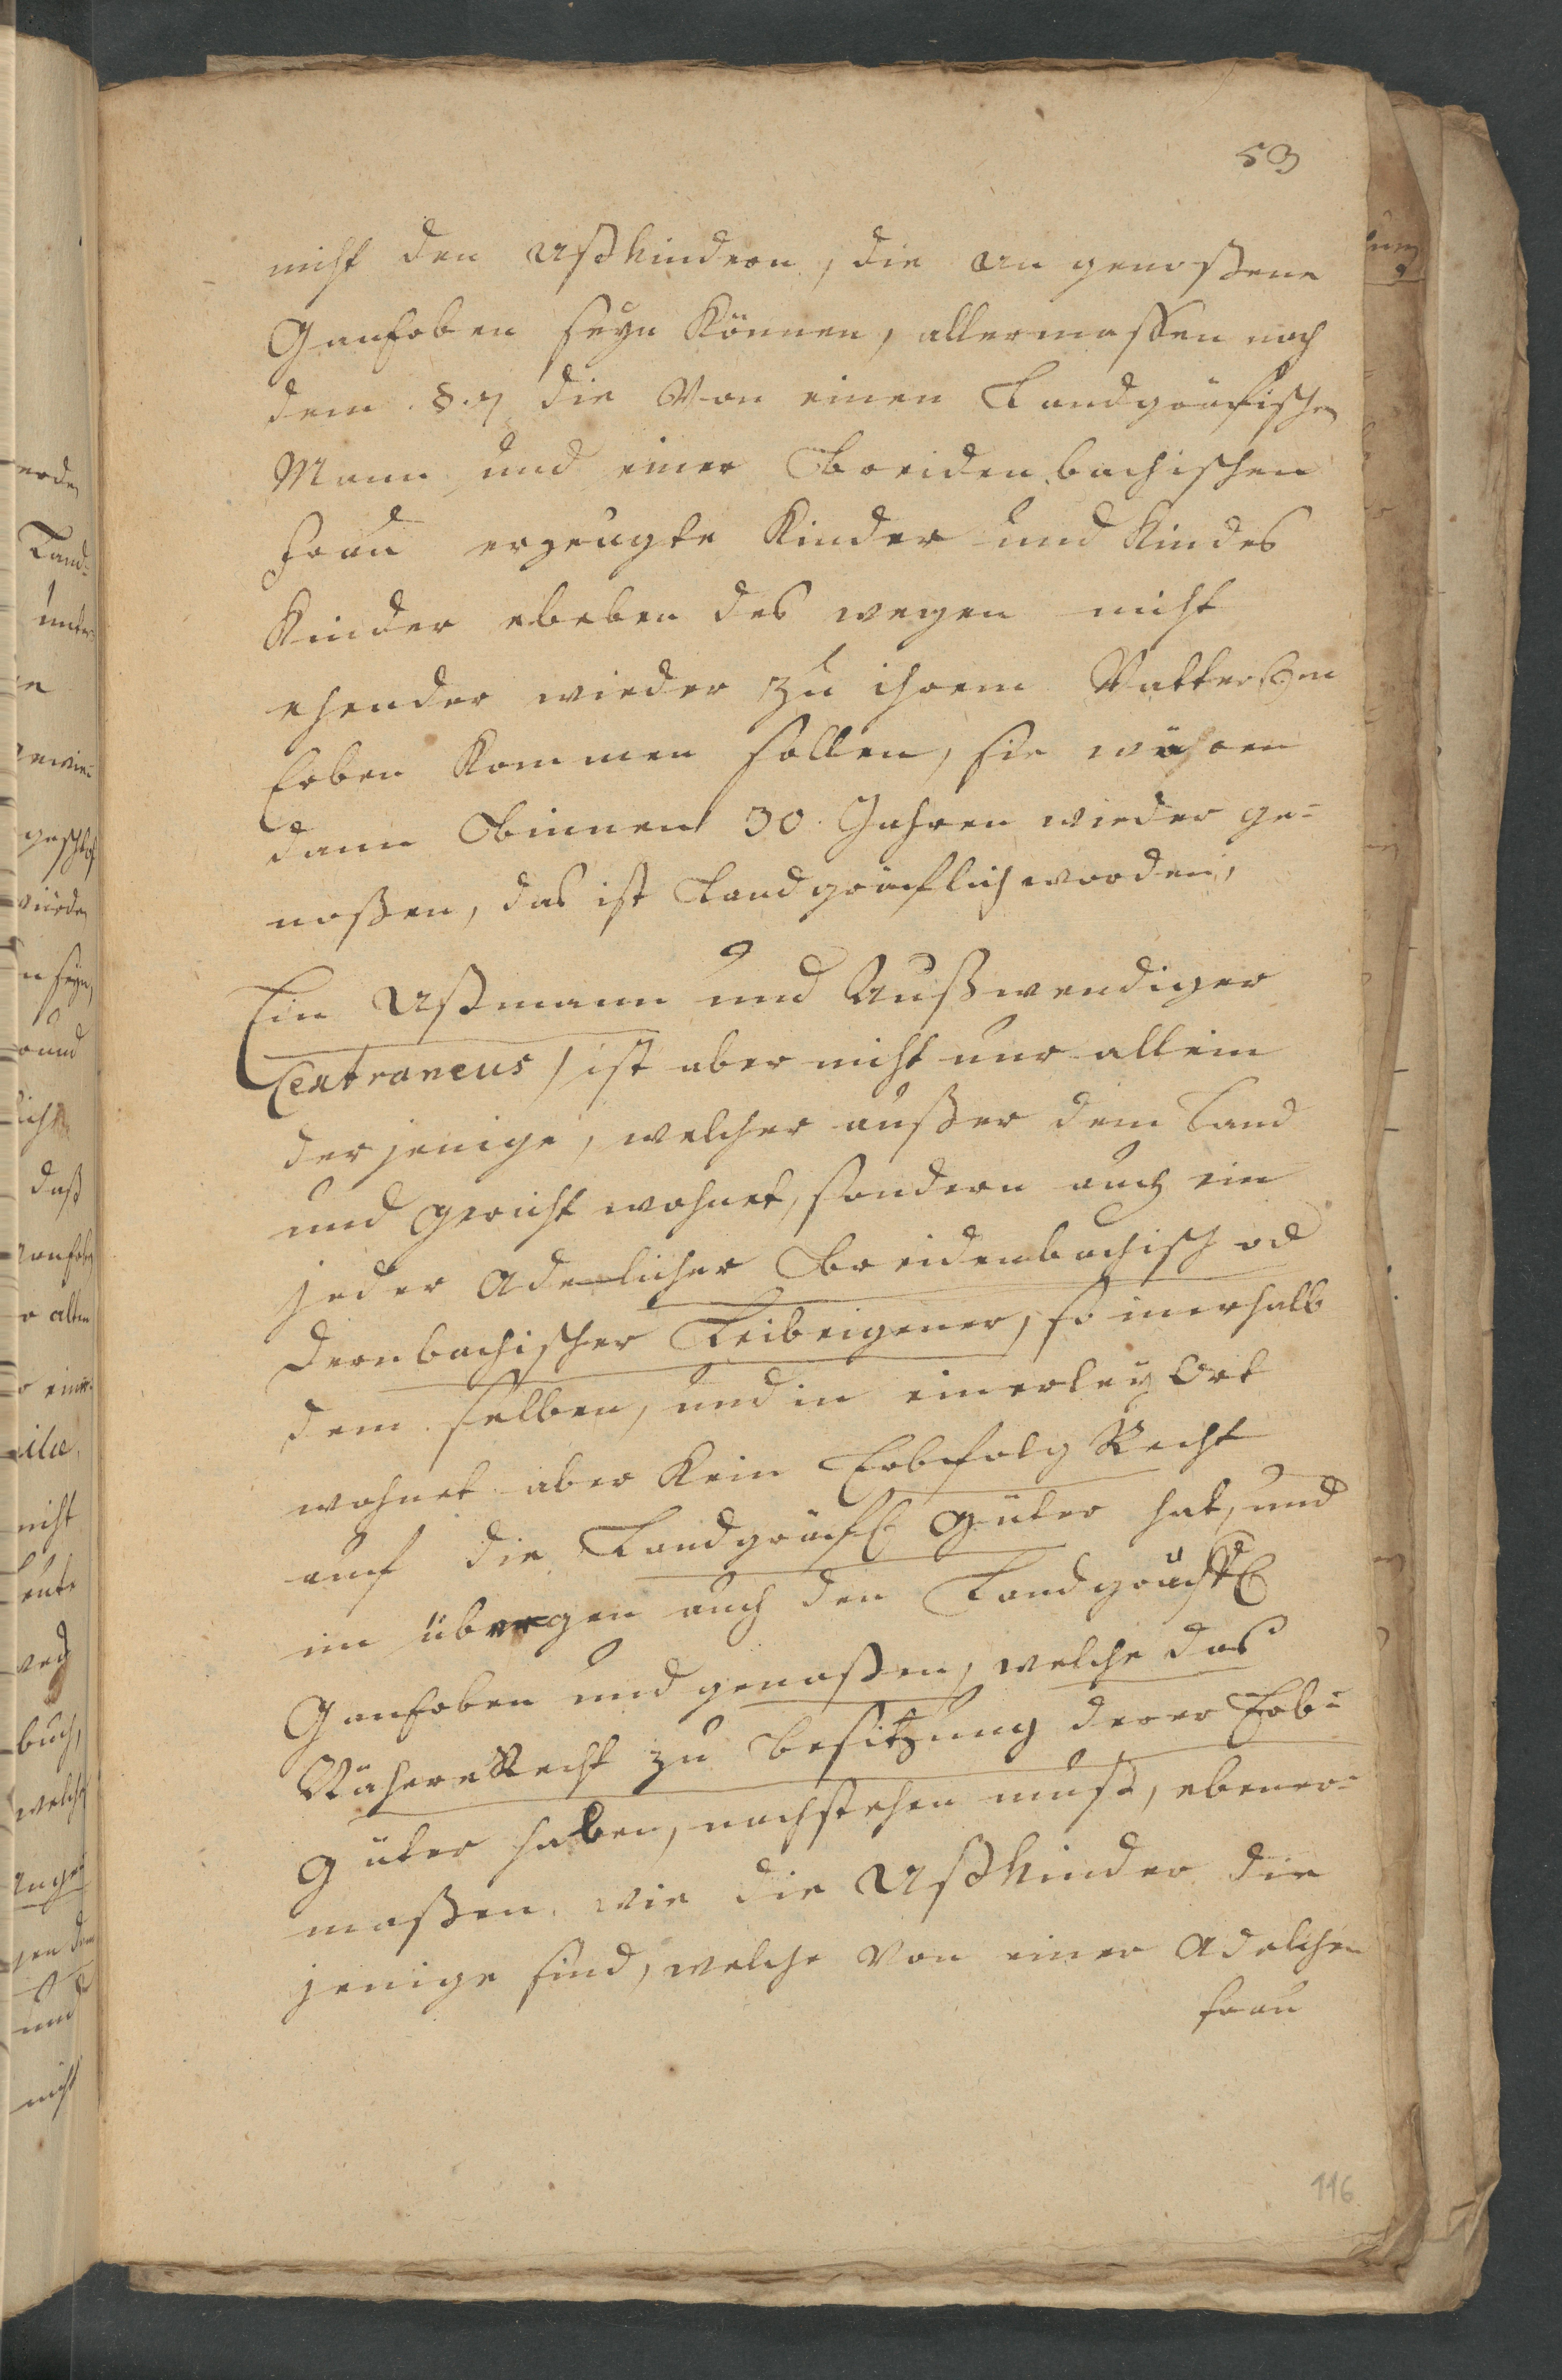 53
nicht den Ußkindern, die un genoßene
Ganerben seyn Können, allermassen nach
dem §. 7 die Von einen Landgräfischen
Mann und einer Breidenbachischen
Frau erzeugte Kinder und Kindes
Kinder ebeben des wegen nicht
ehender wieder zu ihrem Vatter
Erben Kommen sollen, sie währen
dann Binnen 30. Jahren wieder ge=
noßen, das ist Landgräflich worden,
Ein Ußmann und Außwendiger
(extraneus) ist aber nicht nur allein
der jenige, welcher außer dem Land
und Gericht wohnet, sondern auch ein
jeder Adelicher Breidenbachisch od
Dernbachischer Leibeigener, so innerhalb
dem selben, und in einerley Ort
wohnet aber Kein Erbfolg Recht
auf die Landgräfl. Güter hat, und
im übergen auch den Landgräfl.
Ganerben und genoßen, welche das
Nähere Recht zu besitzung derer Erb=
güter haben, nachstehen muß, ebener=
maßen, wie die Ußkinder die
jenige sind, welche Von einer Adelichen
Frau
116